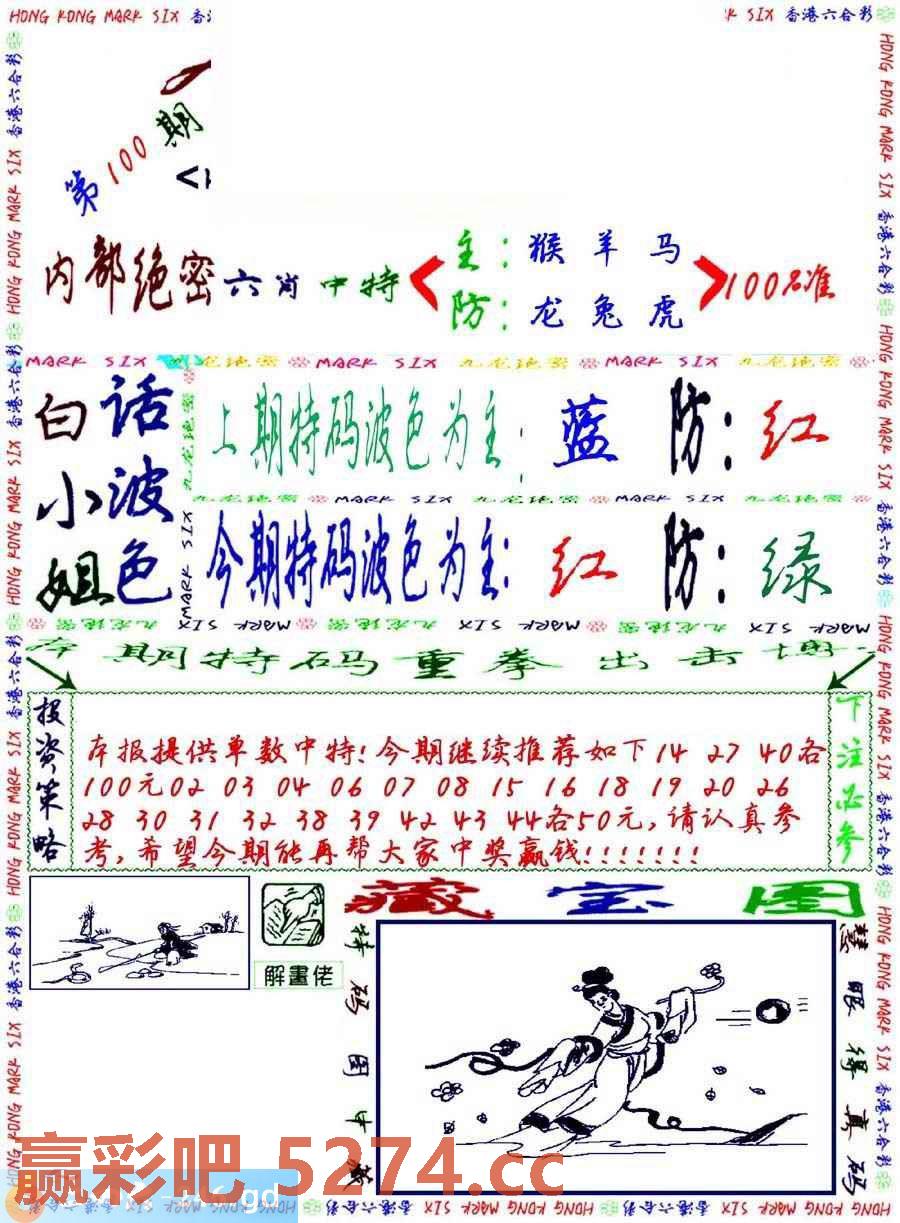 HONG KONG MARK SIX 香港六合彩
第100期
内部绝密六肖中特
主：猴羊马
防：龙兔虎
100%准
MARK SIX 九龙绝密 MARK SIX 九龙绝密 MARK SIX 九龙绝密
白话小波姐色
上期特码波色为主：蓝 防：红
九龙绝密 MARK SIX 九龙绝密 MARK SIX 九龙绝密
今期特码波色为主：红 防：绿
九龙绝密 MARK SIX 九龙绝密 MARK SIX 九龙绝密 MARK SIX
期特码重拳出击
投资策略
本报提供单数中特!今期继续推荐如下14 27 40各
100元02 03 04 06 07 08 15 16 18 19 20 26
28 30 31 32 38 39 42 43 44各50元,请认真参
考,希望今期能再帮大家中奖赢钱!!!!!!!
下注必参
藏宝图
解畫佬
特码图中
慧眼得真码
赢彩吧 5274.cc